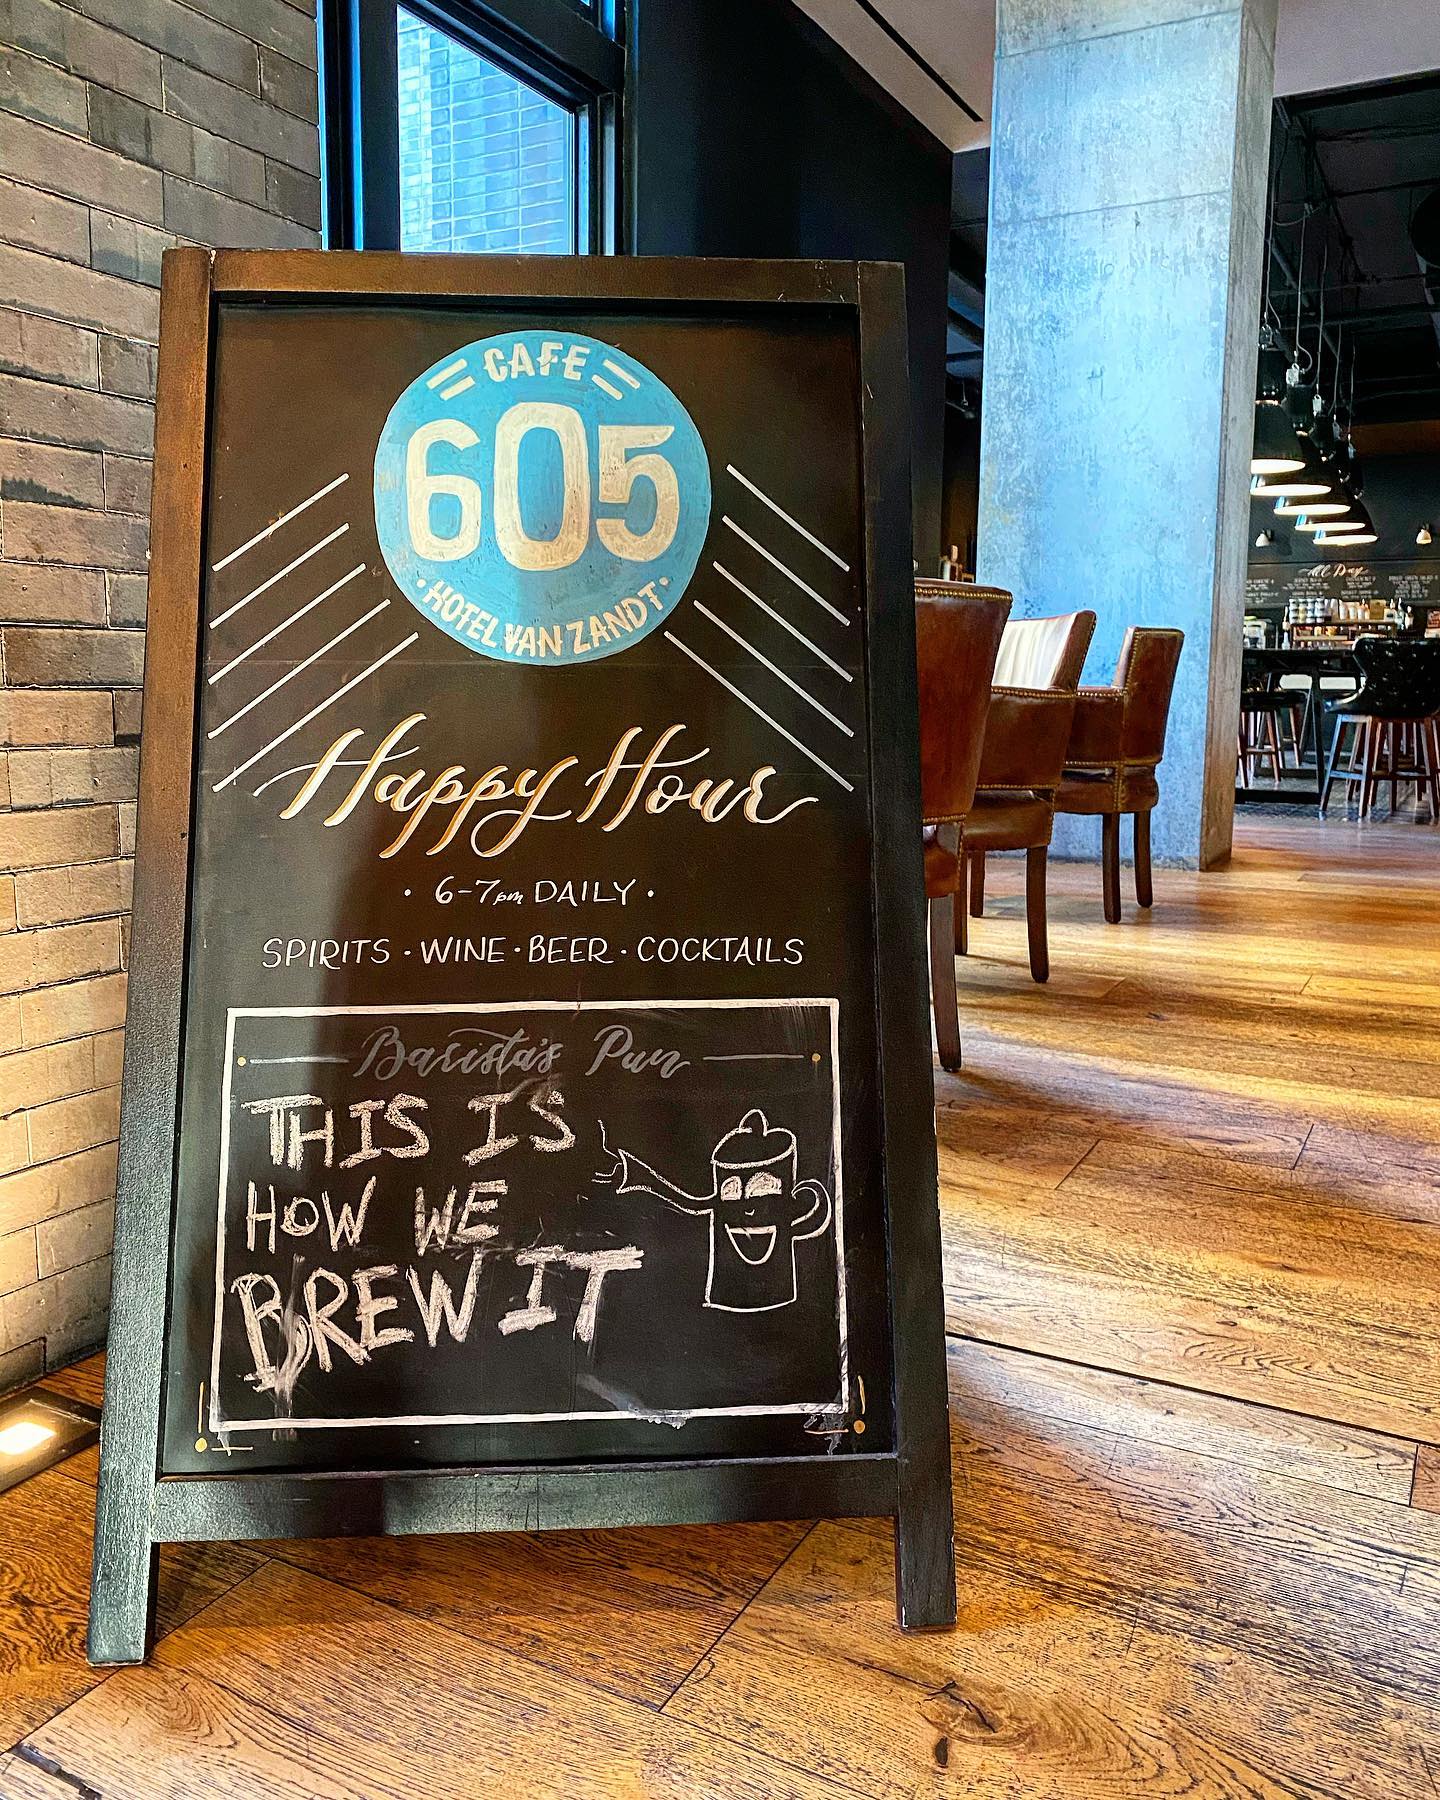 CAFE
605
· HOTEL VAN ZANDT ·
Happy Hour
· 6-7pm DAILY ·
SPIRITS · WINE · BEER · COCKTAILS
Barista's Pun
THIS IS
HOW WE
BREW IT
All Day